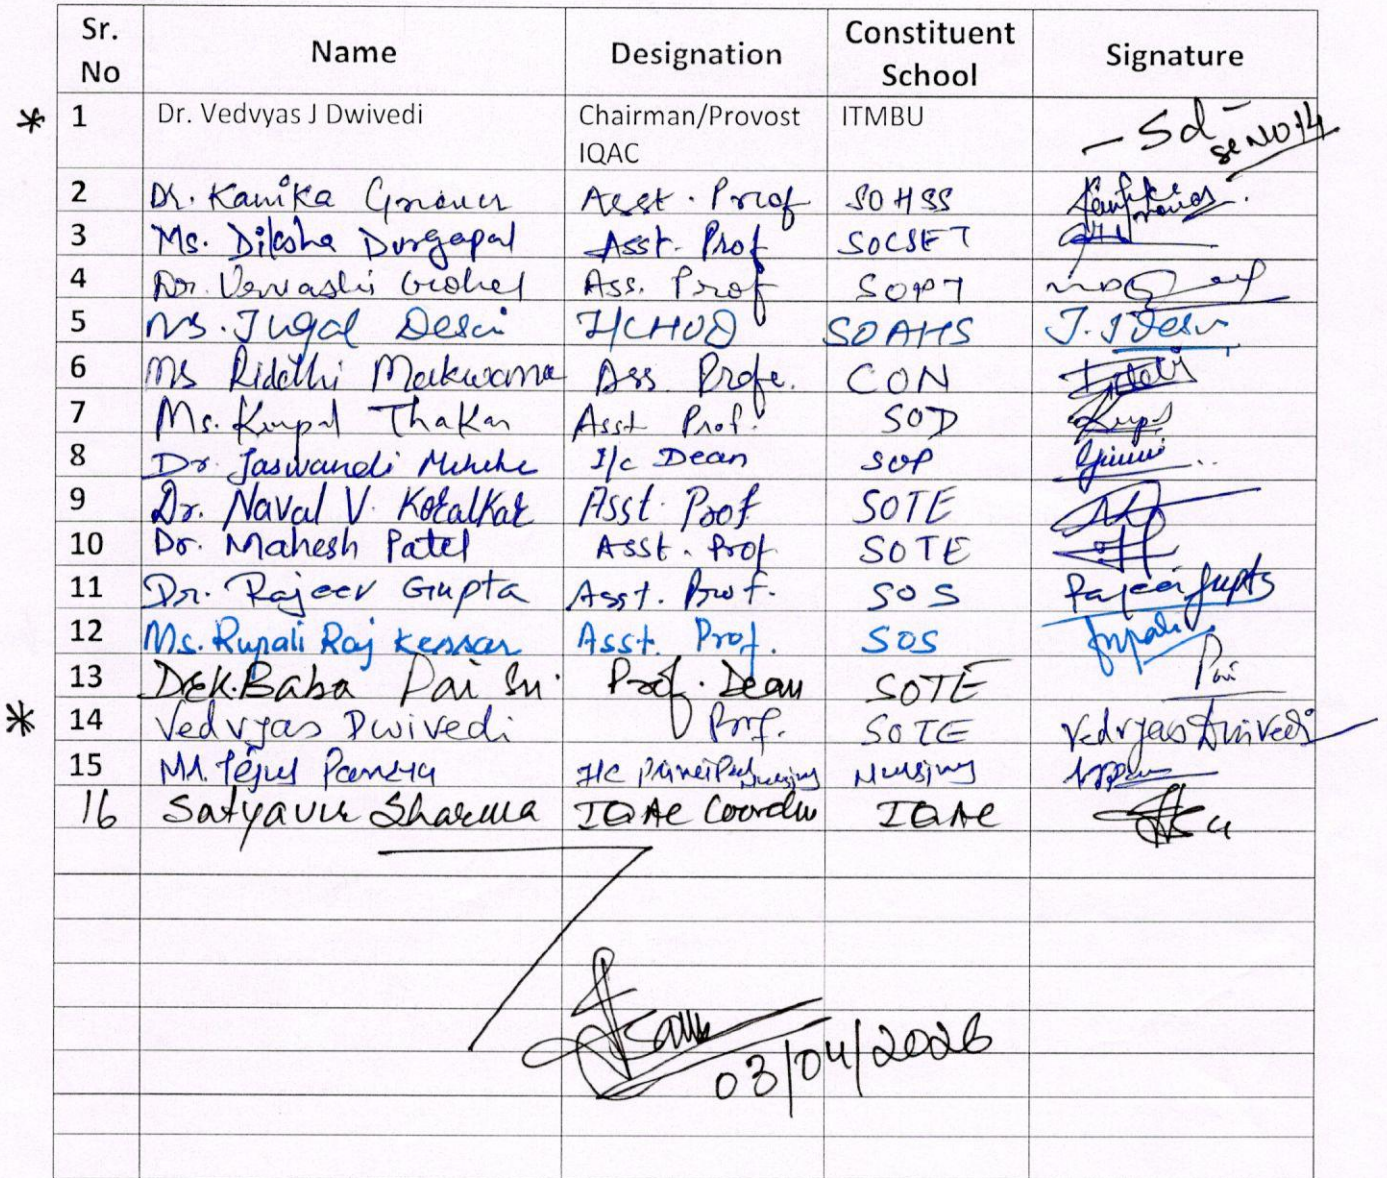 Sr. No Name Designation Constituent School Signature
* 1 Dr. Vedvyas J Dwivedi Chairman/Provost IQAC ITMBU - Sd - Sr NO 14
2 Dr. Kanika Grover Asst. Prof SOHSS
3 Ms. Diksha Durgapal Asst. Prof SOCSET
4 Dr. Urvashi Gohel Ass. Prof SOPT
5 Ms. Jugal Desai I/C HOD SOAHS J. J Desai
6 Ms Riddhi Makwana Ass Profe. CON
7 Ms. Krupal Thakar Asst Prof. SOD
8 Dr. Jaswandi I/c Dean SOP
9 Dr. Naval V. Kotalkar Asst. Prof SOTE
10 Dr. Mahesh Patel Asst. Prof SOTE
11 Dr. Rajeev Gupta Asst. Prof. SOS Rajeev Gupta
12 Ms. Rupali Raj Kessar Asst. Prof. SOS Rupali
13 Dr. K. Baba Pai Prof. Dean SOTE Pai
* 14 Vedvyas Dwivedi Prof. SOTE Vedvyas Dwivedi
15 Mr. Tejas Pandya I/C Principal Nursing Nursing
16 Sharma IQAC IQAC
03/04/2026